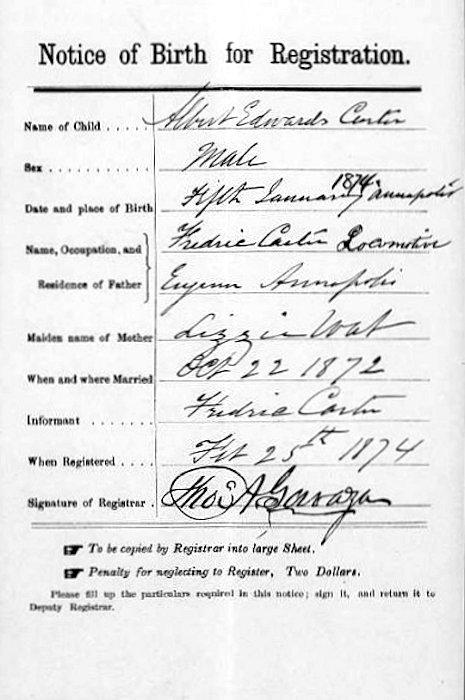 Notice of Birth for Registration.
Name of Child ..... Albert Edwards Carter
Sex ........... Male
Date and place of Birth Fifth January 1874 Annapolis
Name, Occupation, and Fredric Carter Locomotive
Residence of Father Annapolis
Maiden name of Mother Lizzie
When and where Married Oct 22 1872
Informant ...... Fredric Carter
When Registered .... Feb 25th 1874
Signature of Registrar . Thos A
☞ To be copied by Registrar into large Sheet.
☞ Penalty for neglecting to Register, Two Dollars.
Please fill up the particulars required in this notice; sign it, and return it to
Deputy Registrar.